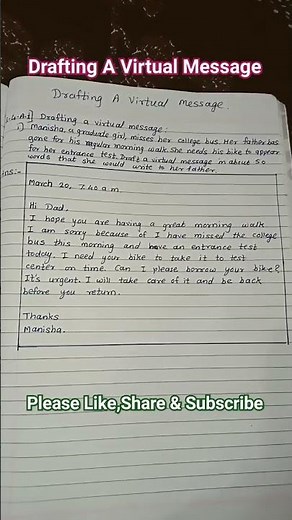 Drafting A Virtual Message
Drafting A Virtual message.
Drafting a virtual message:
i) Manisha, a graduate girl, misses her college bus. Her father has
gone for his regular morning walk. She needs his bike to appear
for her entrance test. Draft a virtual message in about 50
words that she would write to her father.
Ans:-
March 20, 7.40 a.m.
Hi Dad,
I hope you are having a great morning walk
I am sorry because of I have missed the college
bus this morning and have an entrance test
today. I need your bike to take it to test
center on time. Can I please borrow your bike?
It's urgent. I will take care of it and be back
before you return.
Thanks
Manisha.
Please Like,Share & Subscribe